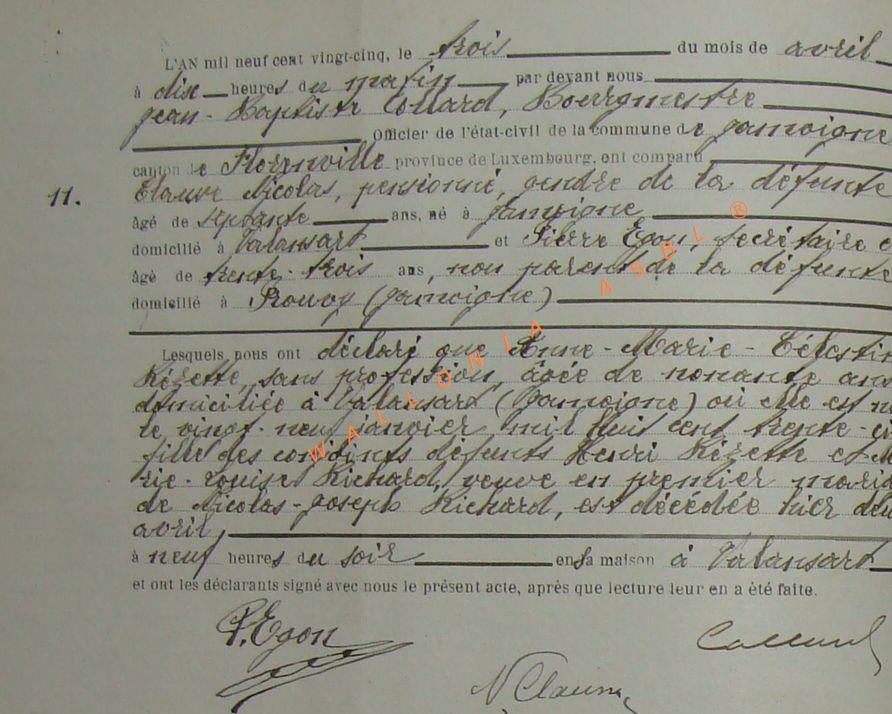 L'AN mil neuf cent vingt-cinq, le trois du mois de avril
à dix heures du matin par devant nous
Jean-Baptiste Collard, Bourgmestre
officier de l'état-civil de la commune de Jamoigne
canton de Florenville province de Luxembourg, ont comparu
11. Nicolas, pensionné, gendre de la défunte
âgé de septante ans, né à Jamoigne
domicilié à Valansart et Pierre Egon, secrétaire
âgé de trente-trois ans, non parent de la défunte
domicilié à Prouvy (Jamoigne)
Lesquels nous ont déclaré que Anne-Marie-Célestin
Rézette, sans profession, âgée de nonante ans
domiciliée à Valansart (Jamoigne) où elle est n
le vingt-neuf janvier mil huit cent trente-ci
fille des conjoints défunts Henri Rézette et M
rie-Louise Richard, veuve en premier maria
de Nicolas-Joseph Richard, est décédée hier deu
avril,
à neuf heures du soir en sa maison à Valansart
et ont les déclarants signé avec nous le présent acte, après que lecture leur en a été faite.
P. Egon
Collard
WALLONIA ASBL ®